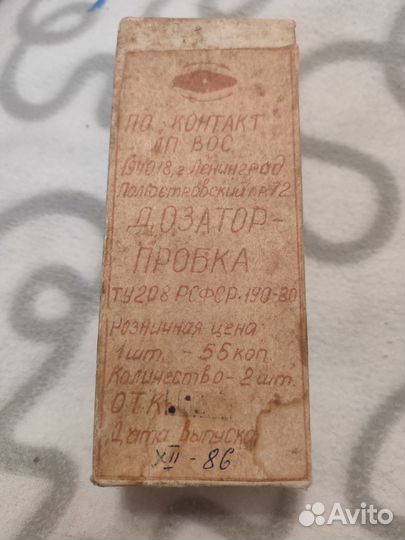 ПО КОНТАКТ
ЛП ВОС
194018, г. Ленинград
Полюстровский пр. 72
ДОЗАТОР-
ПРОБКА
ТУ 208 РСФСР. 190-80
Розничная цена
1 шт. - 55 коп.
Количество - 2 шт.
ОТК
Дата выпуска
XII - 86
Avito